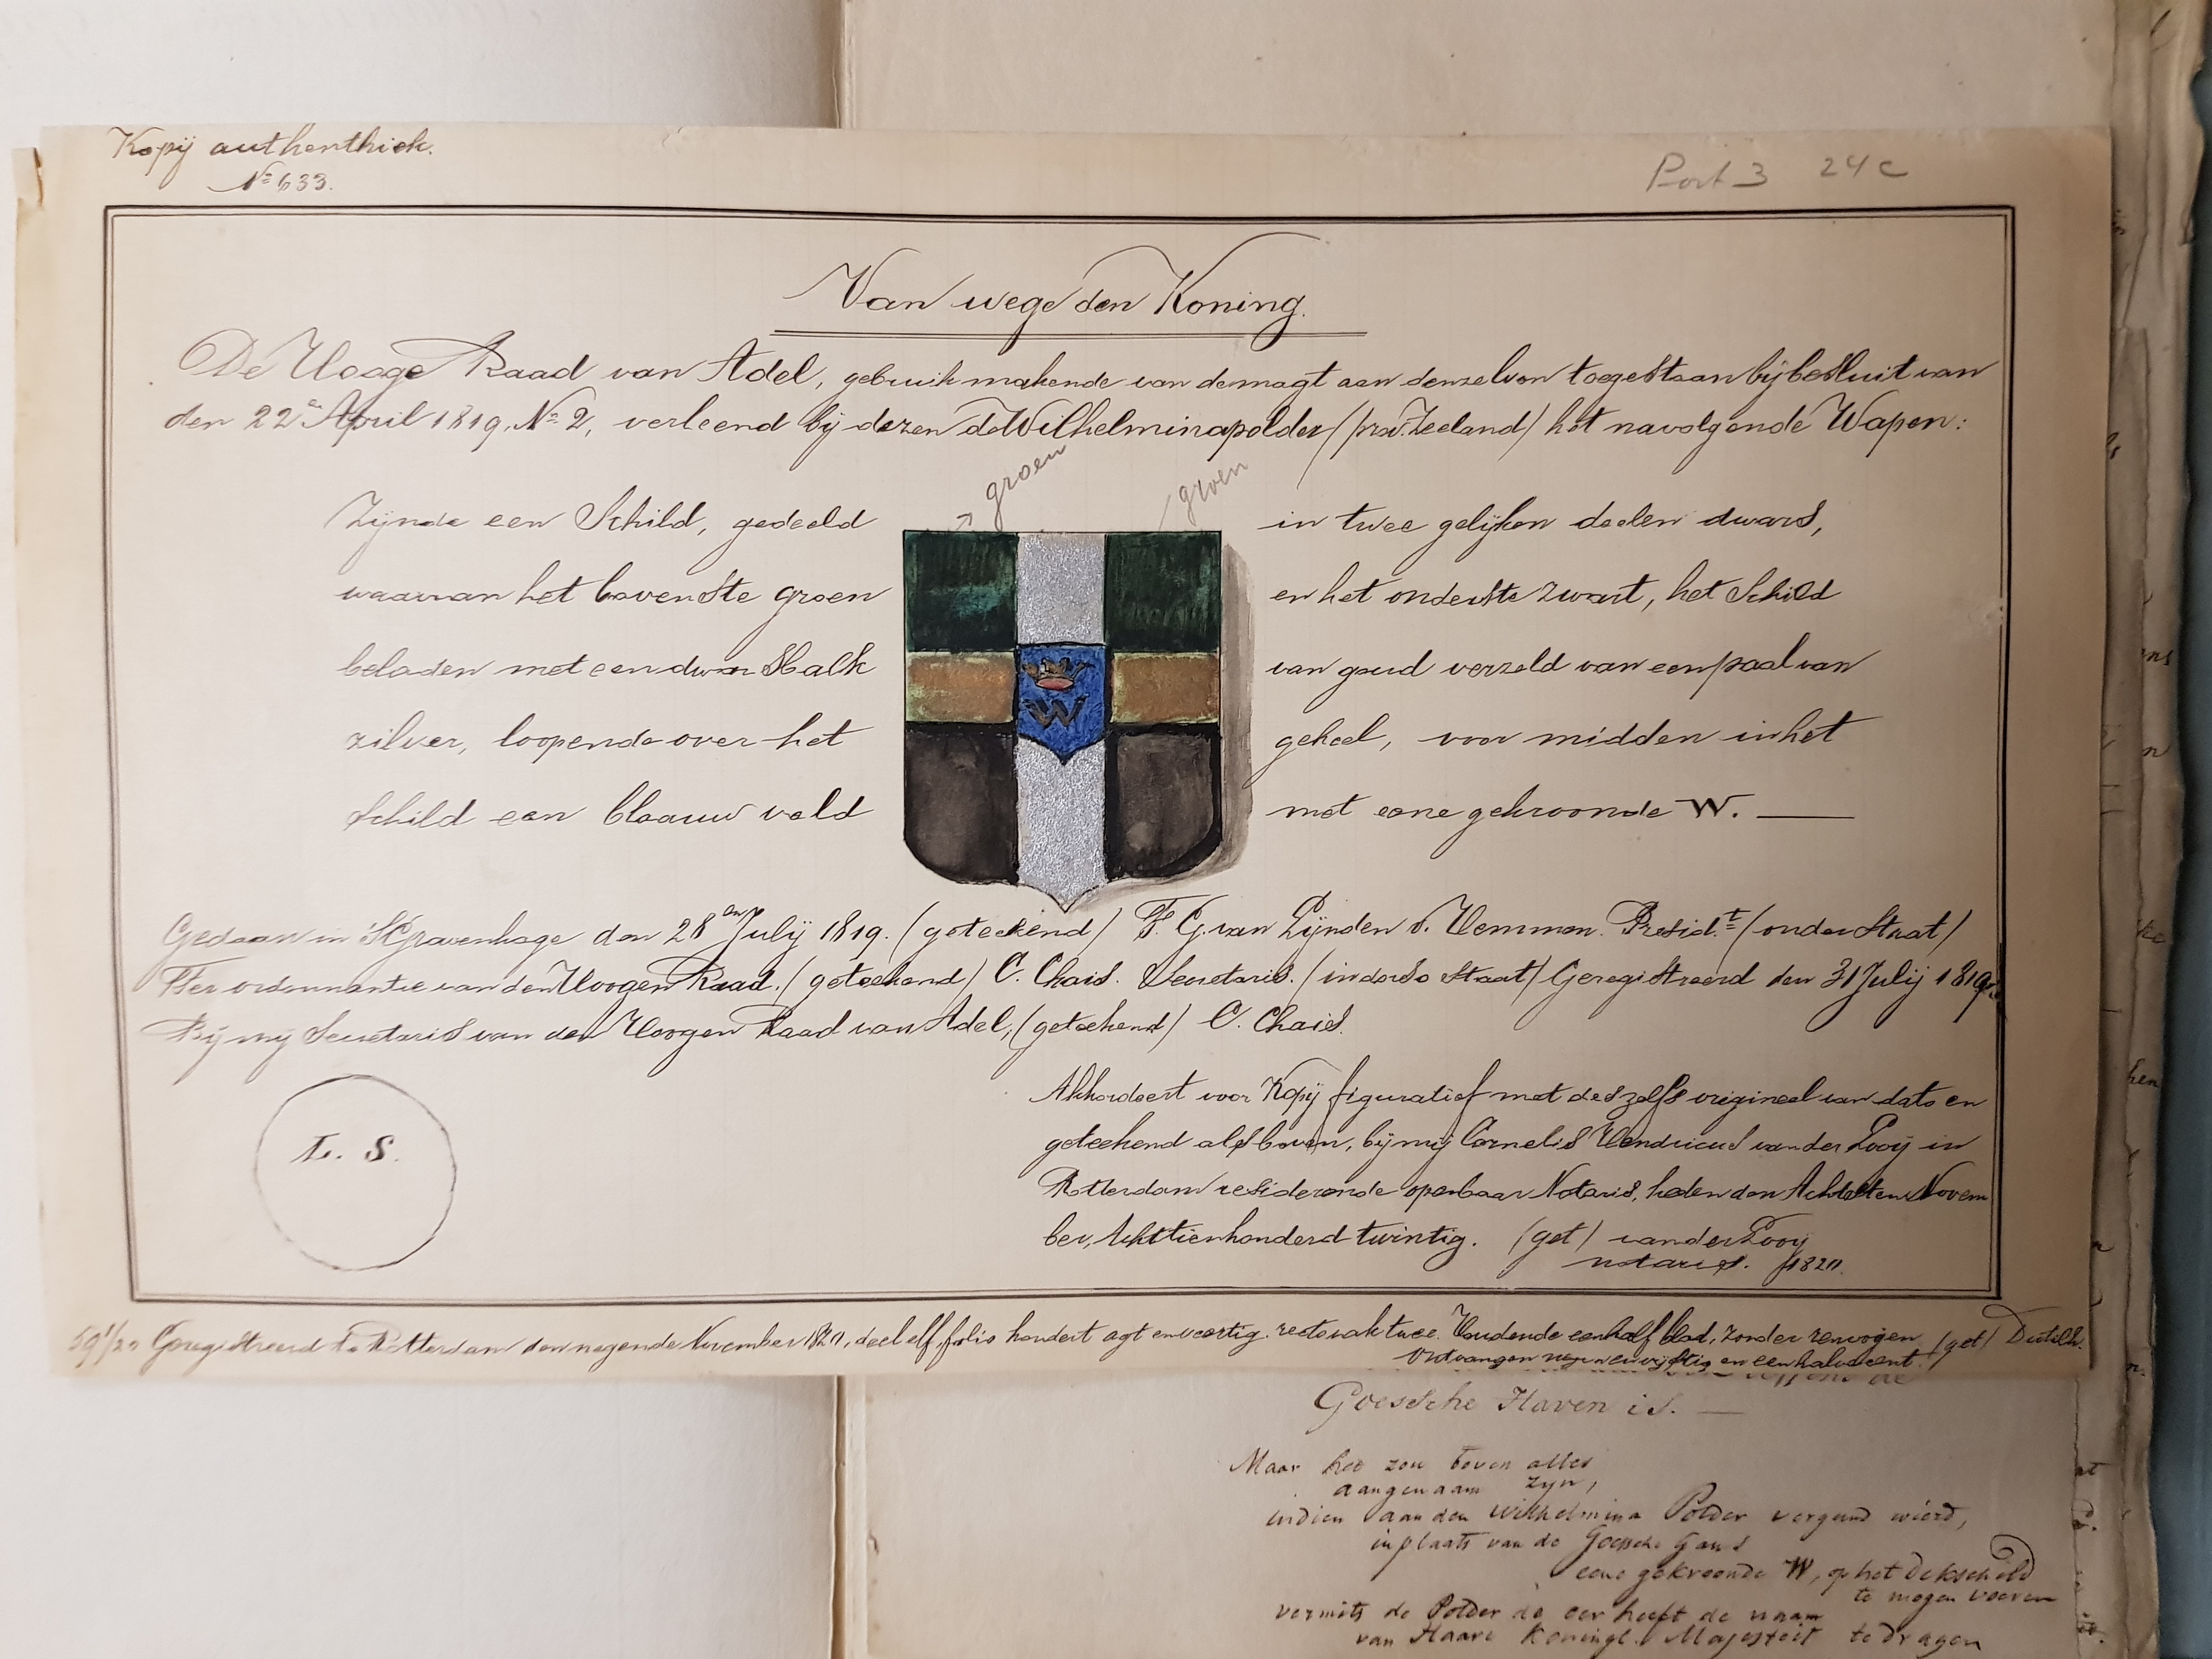 Kopij authenthiek.
No 633.
Port 3 24 c
Van wege den Koning.
De Hooge Raad van Adel, gebruik makende van de magt aan denzelven toegestaan bij besluit van
den 22e April 1819, No 2, verleend bij dezen de Wilhelminapolder (prov. Zeeland) het navolgende Wapen:
groen groen
Zijnde een Schild, gedeeld in twee gelijken deelen dwars,
waarvan het bovenste groen en het onderste zwart, het Schild
beladen met een dwarsbalk van goud verzeld van een paal van
zilver, loopende over het geheel, voor midden in het
schild een blaauw veld met eene gekroonde W.
W
Gedaan in 'sGravenhage den 28en Julij 1819. (geteekend) F. G. van Lijnden v. Hemmen. Presid.t (onder Staat)
Ter ordonnantie van den Hoogen Raad. (geteekend) C. Chais. Secretaris. (in dorso Staat) Geregistreerd den 31 Julij 1819
Bij mij Secretaris van den Hoogen Raad van Adel, (geteekend) C. Chais.
L. S.
Akkordeert voor Kopij figuratief met deszelfs origineel van dato en
geteekend als boven, bij mij Cornelis Hendricus van der Looij in
Rotterdam residerende openbaar Notaris, heden den Achtsten Novem
ber, Achttienhonderd twintig. (get) van der Looy
notaris. 1820.
59 1/20 Geregistreerd te Rotterdam den negende November 1820, deel elf, folio hondert agt en veertig recto vak twee. Houdende een half blad, zonder renvoijen (get) Dutilh.
Ontvangen negen en vijftig en een halve cent.
Goessche Haven is.
Maar het zou boven alles
aangenaam zijn,
indien aan den Wilhelmina Polder vergund wierd,
in plaats van de Goessche Gans
eene gekroonde W, op het Dekschild
te mogen voeren
vermits de Polder de eer heeft de naam
van Haare Koningl. Majesteit te dragen